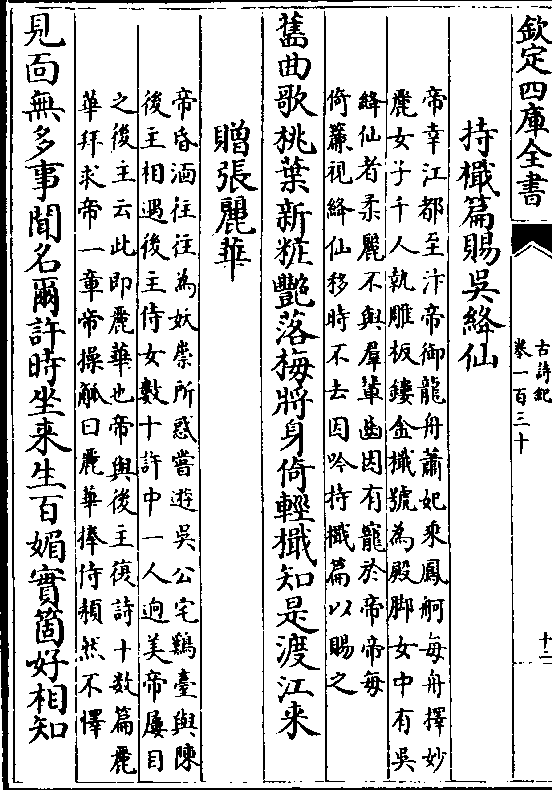 欽定四庫全書
古詩紀
卷一百三十
十二
持檝篇賜吳絳仙
帝幸江都至汴帝御龍舟蕭妃乘鳳舸每舟擇妙
麗女子千人執雕板鏤金檝號為殿脚女中有吳
絳仙者柔麗不與羣輩齒因有寵於帝帝每
倚簾視絳仙移時不去因吟持檝篇以賜之
舊曲歌桃葉新粧艷落梅將身倚輕檝知是渡江來
贈張麗華
帝昏湎往往為妖祟所惑嘗遊吳公宅鷄臺與陳
後主相遇後主侍女數十許中一人逈美帝屢目
之後主云此即麗華也帝與後主復詩十数篇麗
華拜求帝一章帝操觚曰麗華捧侍頩然不懌
見面無多事聞名爾許時坐来生百媚實箇好相知